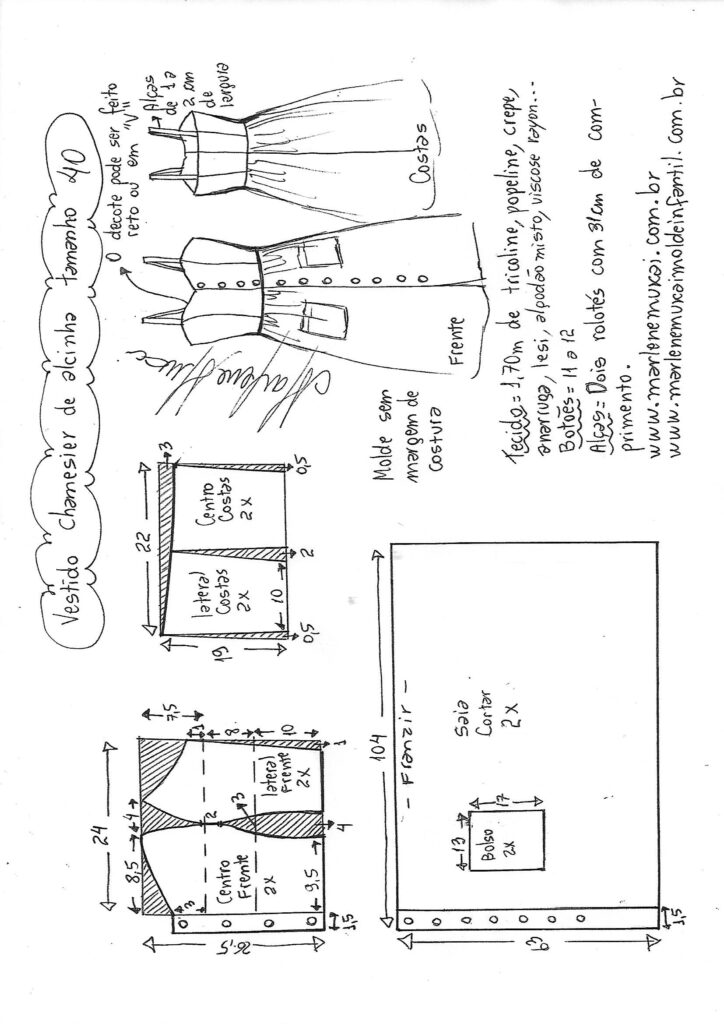 Vestido Chamesier de alcinha tamanho 40
O decote pode ser feito
reto ou em "V"
Alças
de 1 a
2 cm
de
largura
Costas
Frente
Molde sem
margem de
costura
Tecido = 1,70m de tricoline, popeline, crepe,
anarruga, lesi, algodão misto, viscose rayon...
Botões = 11 a 12
Alças = Dois rolotés com 31cm de com-
primento.
www.marlenemukai.com.br
www.marlenemukaimoldeinfantil.com.br
22
3
Centro
Costas
2x
lateral
Costas
2x
19
10
0,5
2
0,5
24
8,5
4
7,5
1
8
10
3
2
3
Centro
Frente
2x
lateral
Frente
2x
9,5
4
1
26,5
1,5
104
- Franzir -
Saia
Cortar
2x
13
17
Bolso
2x
63
1,5